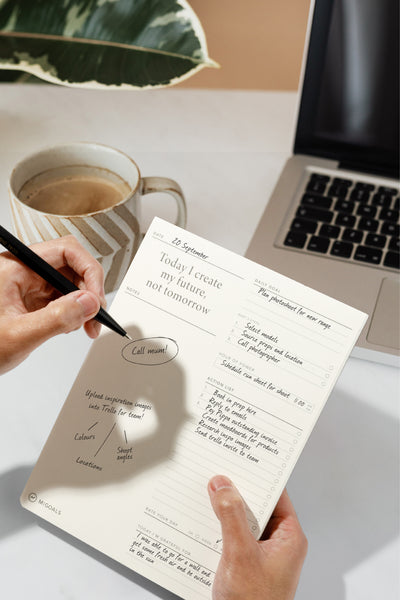 DATE
20 September
Today I create
my future,
not tomorrow
NOTES
Call mum!
Upload inspiration images
into Trello for team!
Colours
Locations
Shoot
angles
MiGOALS
DAILY GOAL
Plan photoshoot for new range
Select models
Source props and location
Call photographer
HOUR OF POWER
Schedule run sheet for shoot
9:00
ACTION LIST
Book in prop hire
Reply to emails
Pay Pirpa outstanding invoice
Create moodboards for products
Research inspo images
Send trello invite to team
RATE YOUR DAY
GOOD
TODAY I'M GRATEFUL FOR
I was able to go for a walk and
get some fresh air and be outside
in the sun